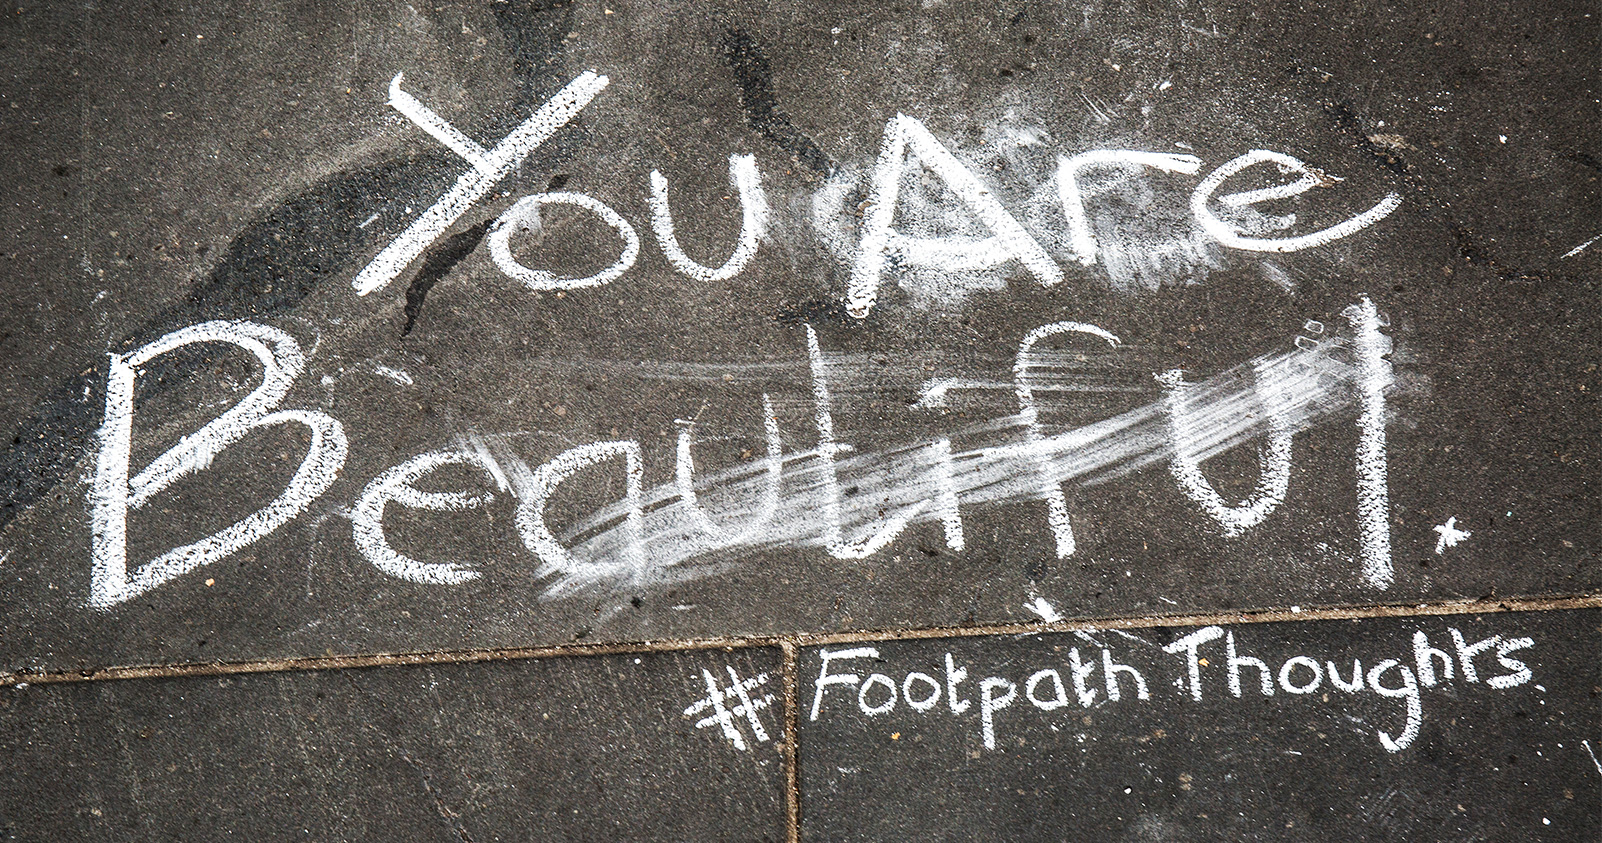 You Are
Beautiful.
#FootpathThoughts